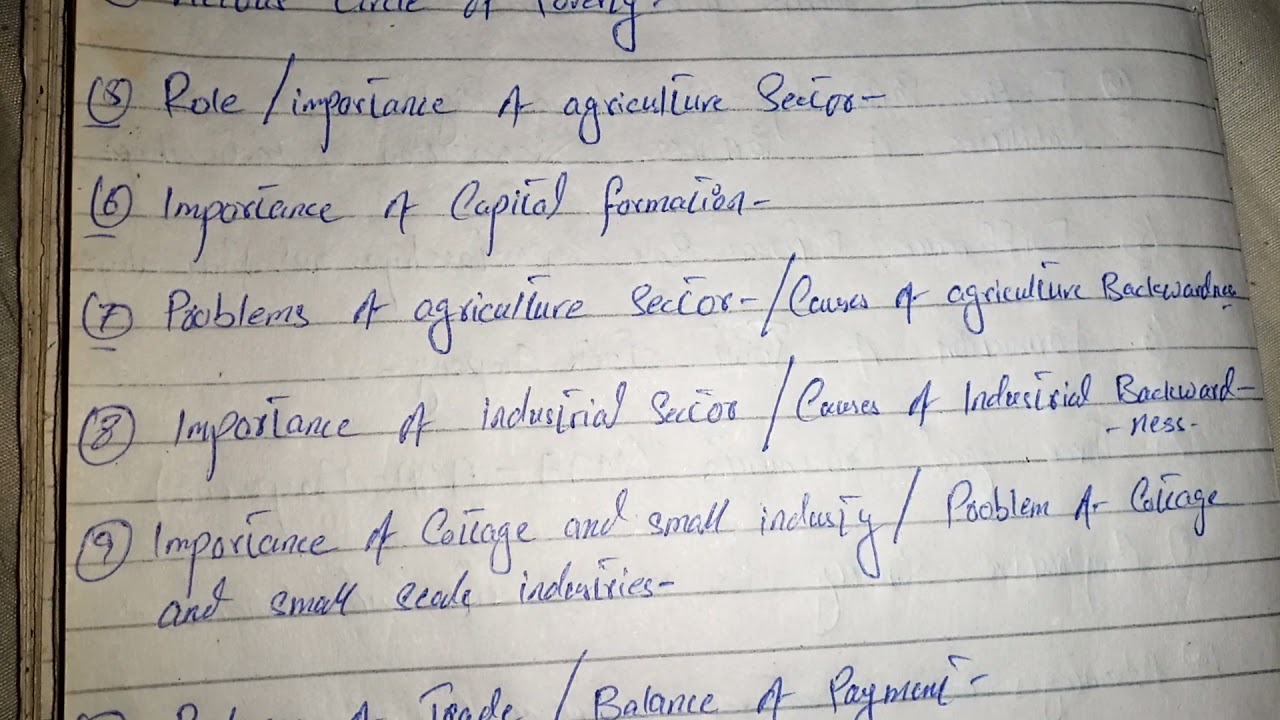 Vicious Circle of Poverty.
(5) Role / importance of agriculture Sector-
(6) Importance of Capital formation-
(7) Problems of agriculture Sector-/Causes of agriculture Backwardness
(8) Importance of industrial Sector / Causes of Industrial Backward-
-ness-
(9) Importance of Cottage and small industy / Problem of Cottage
and small scale industries-
Balance of Trade / Balance of Payment-